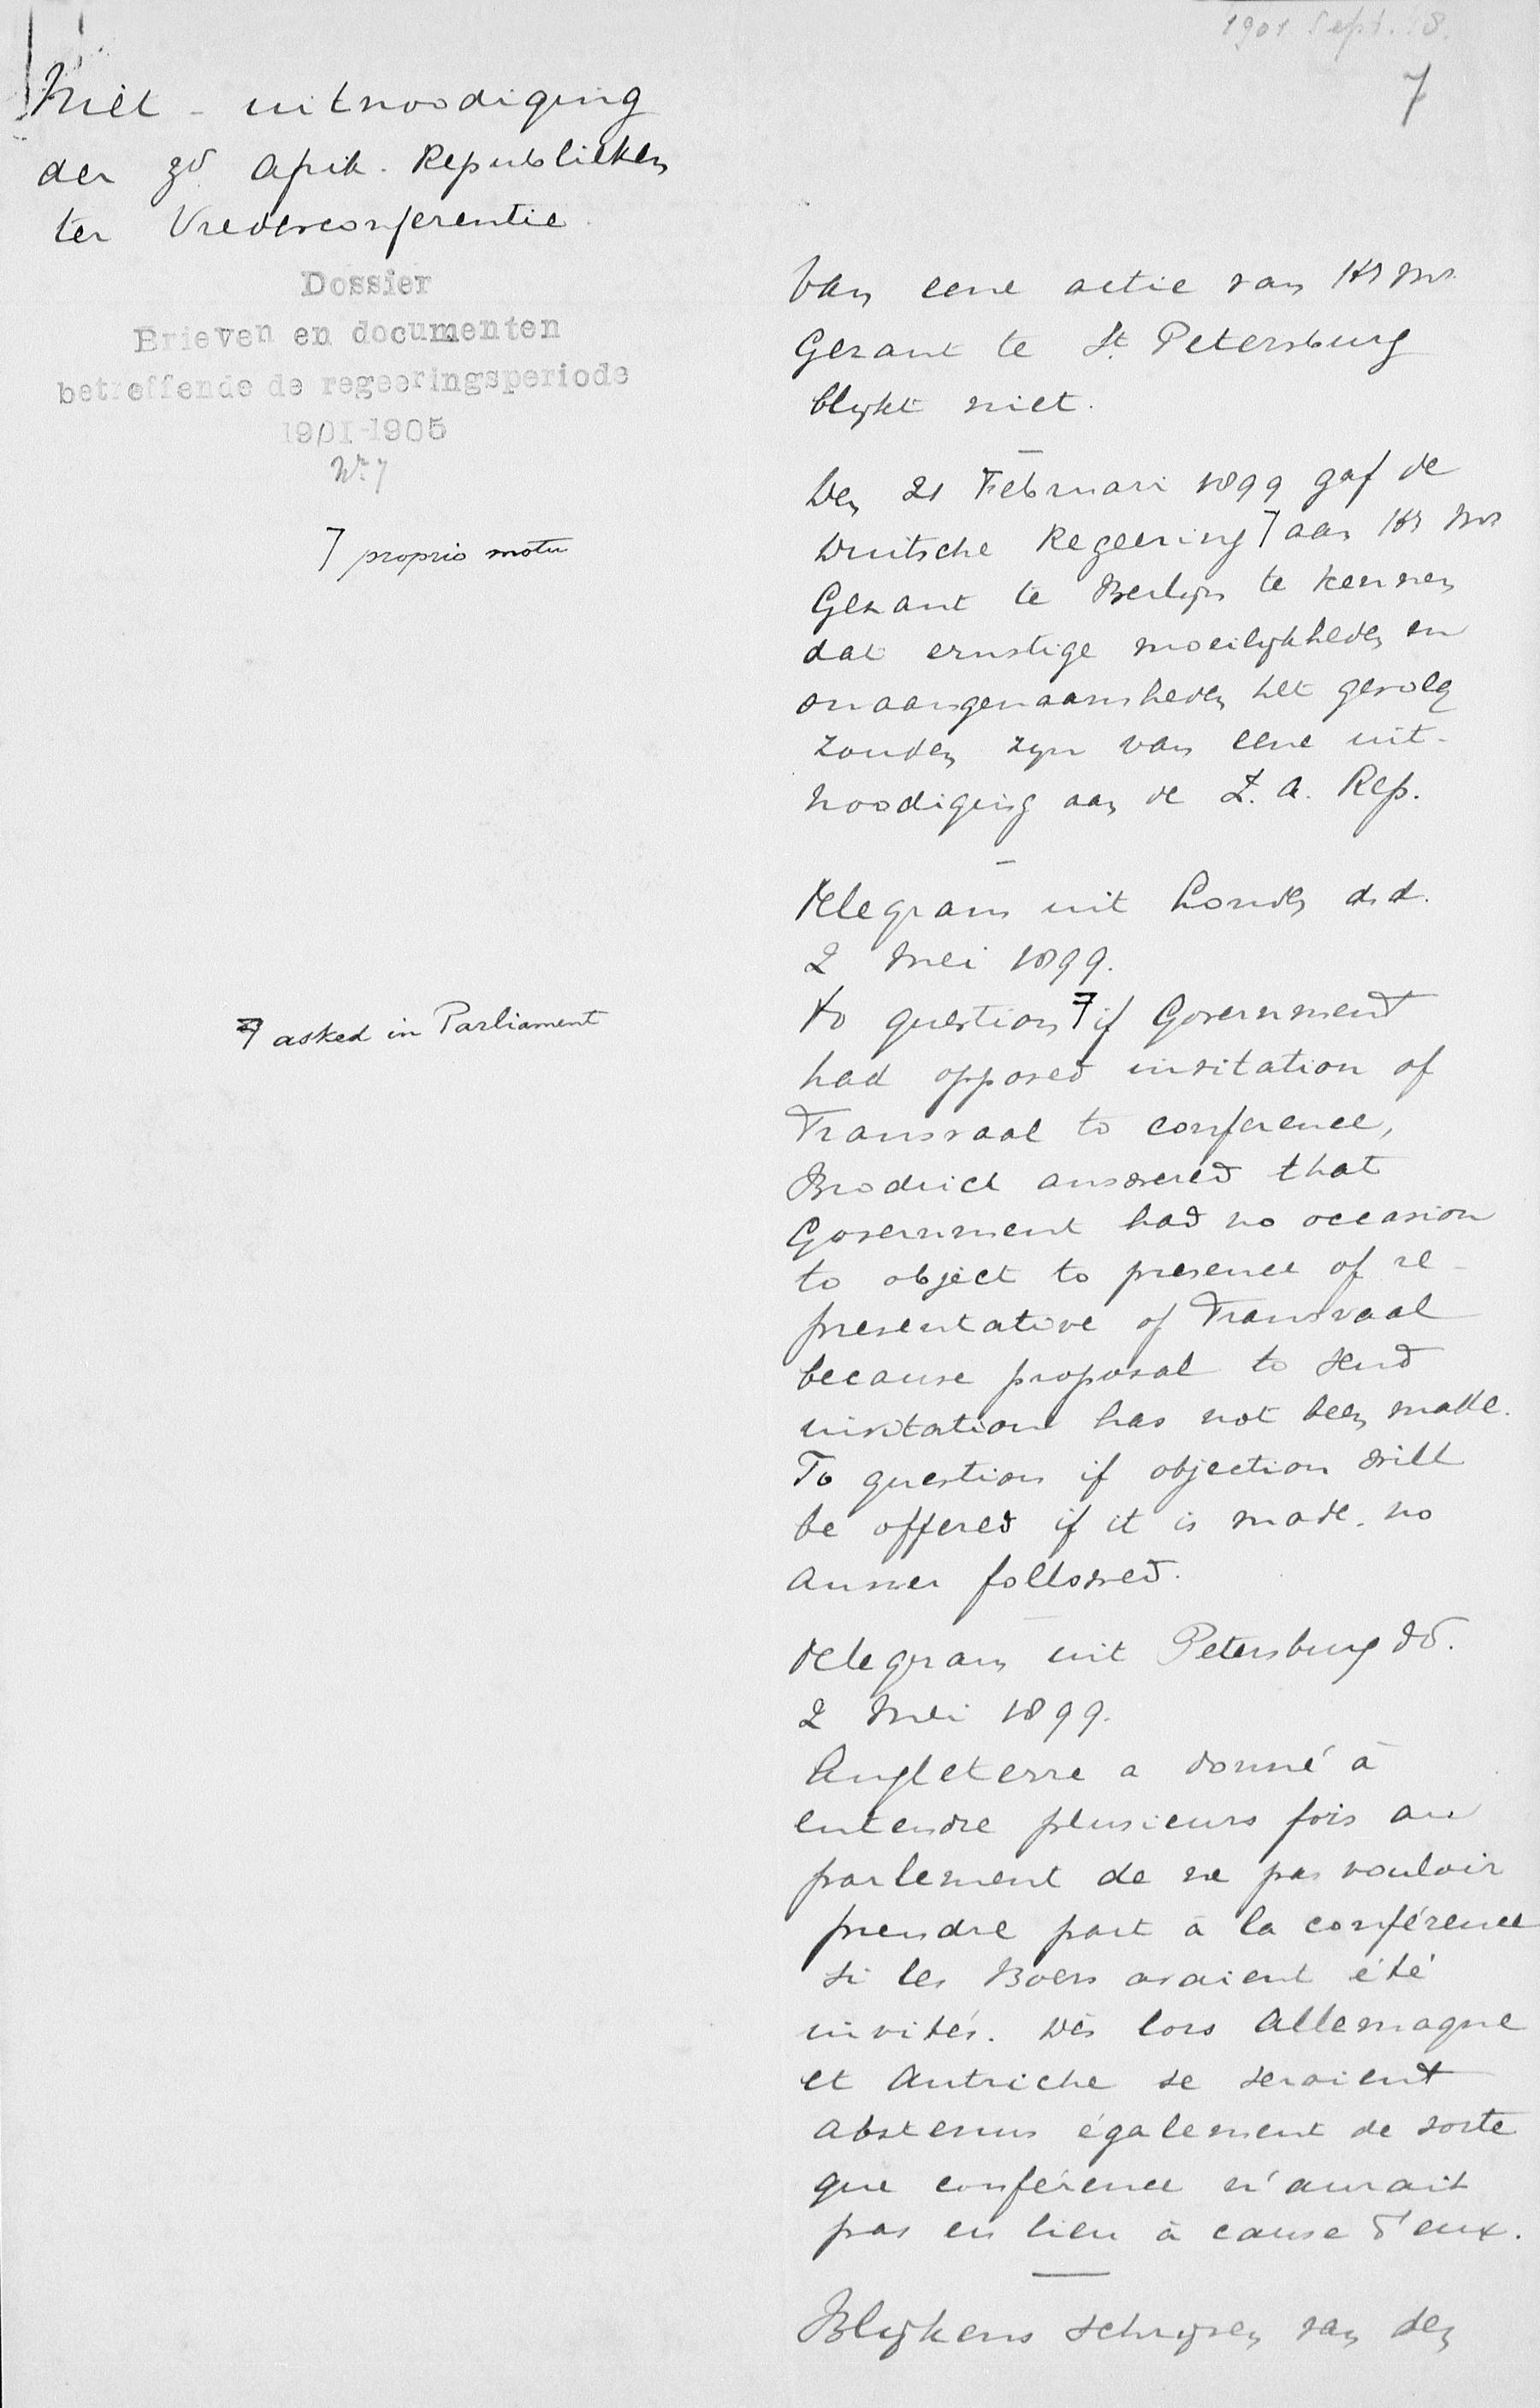 1901 Sept. 18.
7
Niet-uitnoodiging
der Zd Afrik. Republieken
ter Vredesconferentie
Dossier
Brieven en documenten
betreffende de regeeringsperiode
1901-1905
Nr. 7
Van eene actie van Hr Ms
Gezant te St. Petersburg
blijkt niet.
Den 21 Februari 1899 gaf de
Duitsche Regeering 7 aan Hr Ms
Gezant te Berlijn te kennen
dat ernstige moeilijkheden en
onaangenaamheden het gevolg
zouden zijn van eene uit-
noodiging aan de Z. A. Rep.
7 proprio motu
Telegram uit Londen d.d.
2 Mei 1899.
To question 7 if Government
had opposed invitation of
Transvaal to conference,
Brodrick answered that
Government had no occasion
to object to presence of re-
presentative of Transvaal
because proposal to send
invitation has not been made.
To question if objection will
be offered if it is made, no
answer followed.
7 asked in Parliament
Telegram uit Petersburg dd.
2 Mei 1899.
Angleterre a donné à
entendre plusieurs fois au
parlement de ne pas vouloir
prendre part à la conférence
si les Boers avaient été
invités. Dès lors Allemagne
et Autriche se seraient
abstenus également de sorte
que conférence n'aurait
pas eu lieu à cause d'eux.
Blijkens schrijven van den